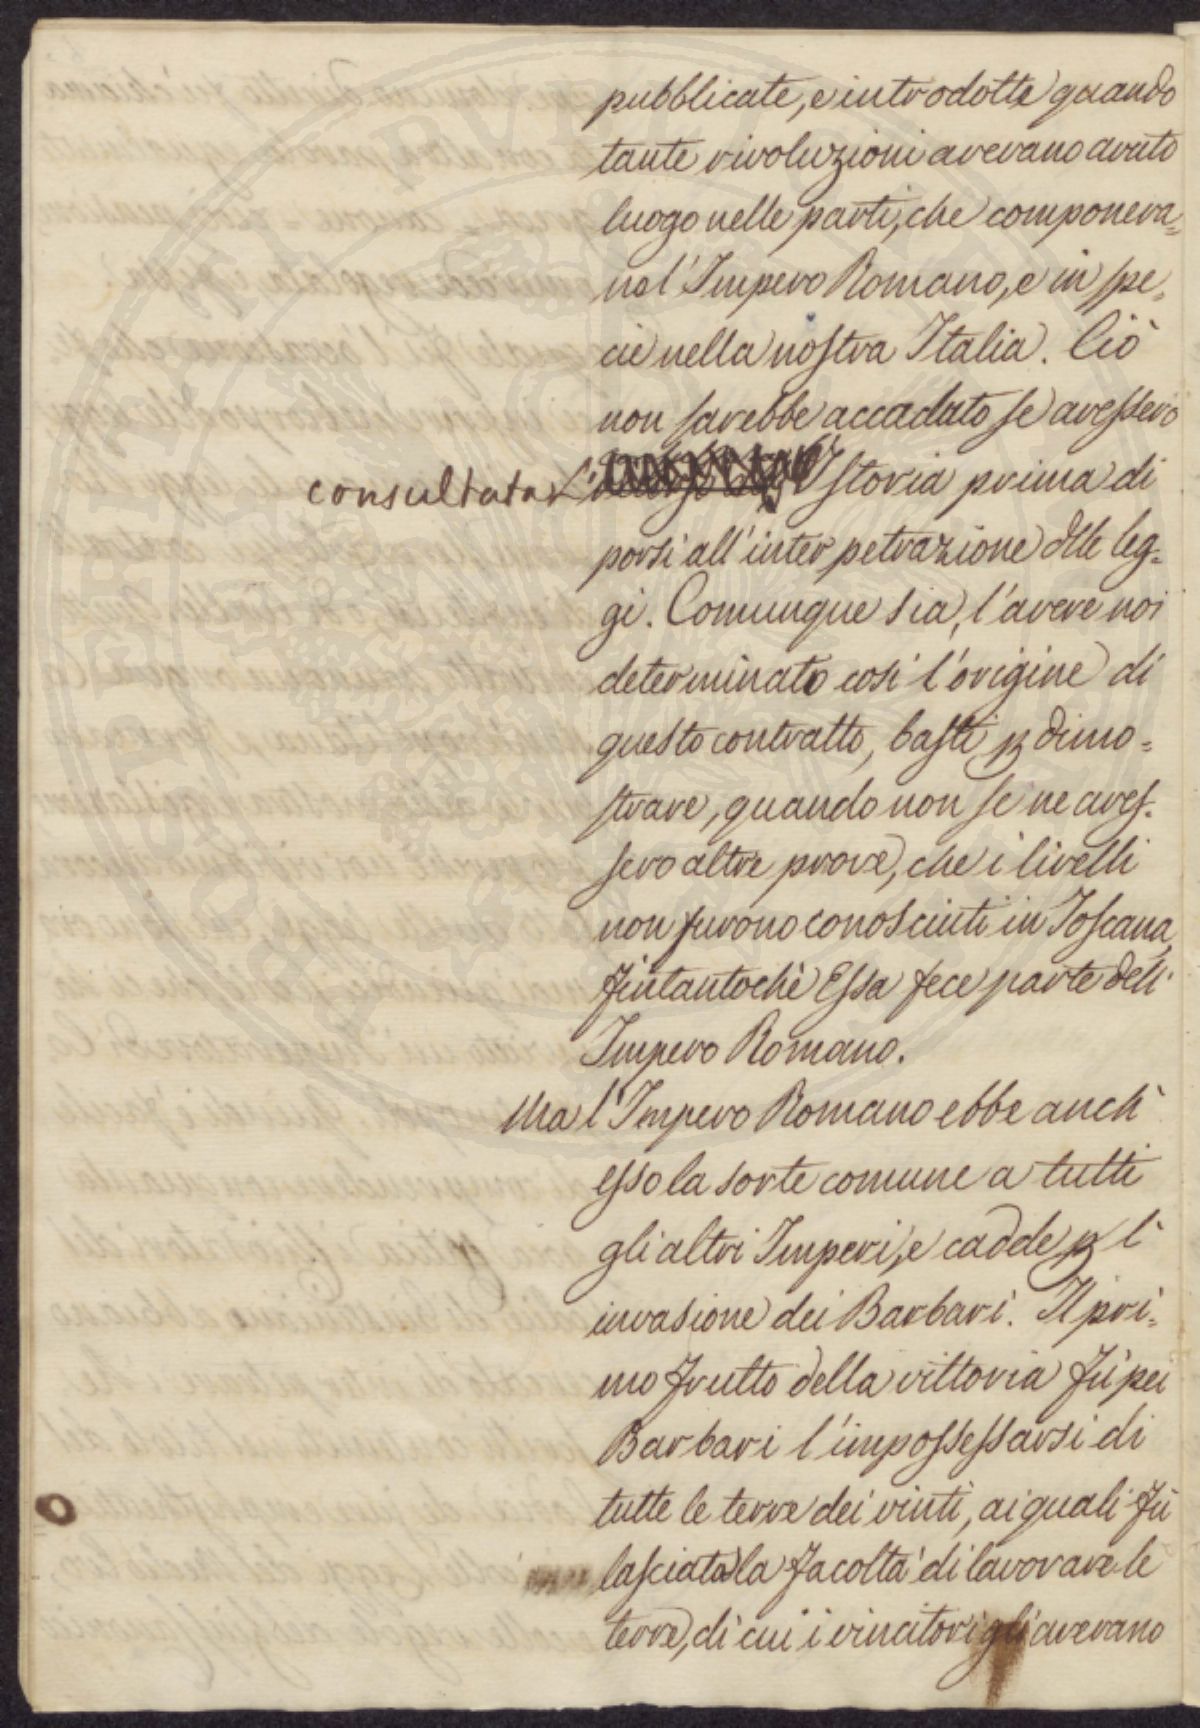 pubblicate, e introdotte quando
tante rivoluzioni avevano avuto
luogo nelle parti, che componeva=
no l'Impero Romano, e in spe=
cie nella nostra Italia. Ciò
non sarebbe accaduto se avessero
consultata L' Istoria prima di
porsi all'interpetrazione dlle leg=
gi. Comunque sia, l'avere noi
determinato così l'origine di
questo contratto, basti p dimo=
strare, quando non se ne aves=
sero altre prove, che i livelli
non furono conosciuti in Toscana,
fintantochè Essa fece parte dell'
Impero Romano.
Ma l'Impero Romano ebbe anch'
esso la sorte comune a tutti
gli altri Imperi, e cadde p l'
invasione dei Barbari. Il pri=
mo frutto della vittoria fù pei
Barbari l'impossessarsi di
tutte le terre dei vinti, ai quali fù
lasciata la facoltà di lavorare le
terre, di cui i vincitori gli avevano